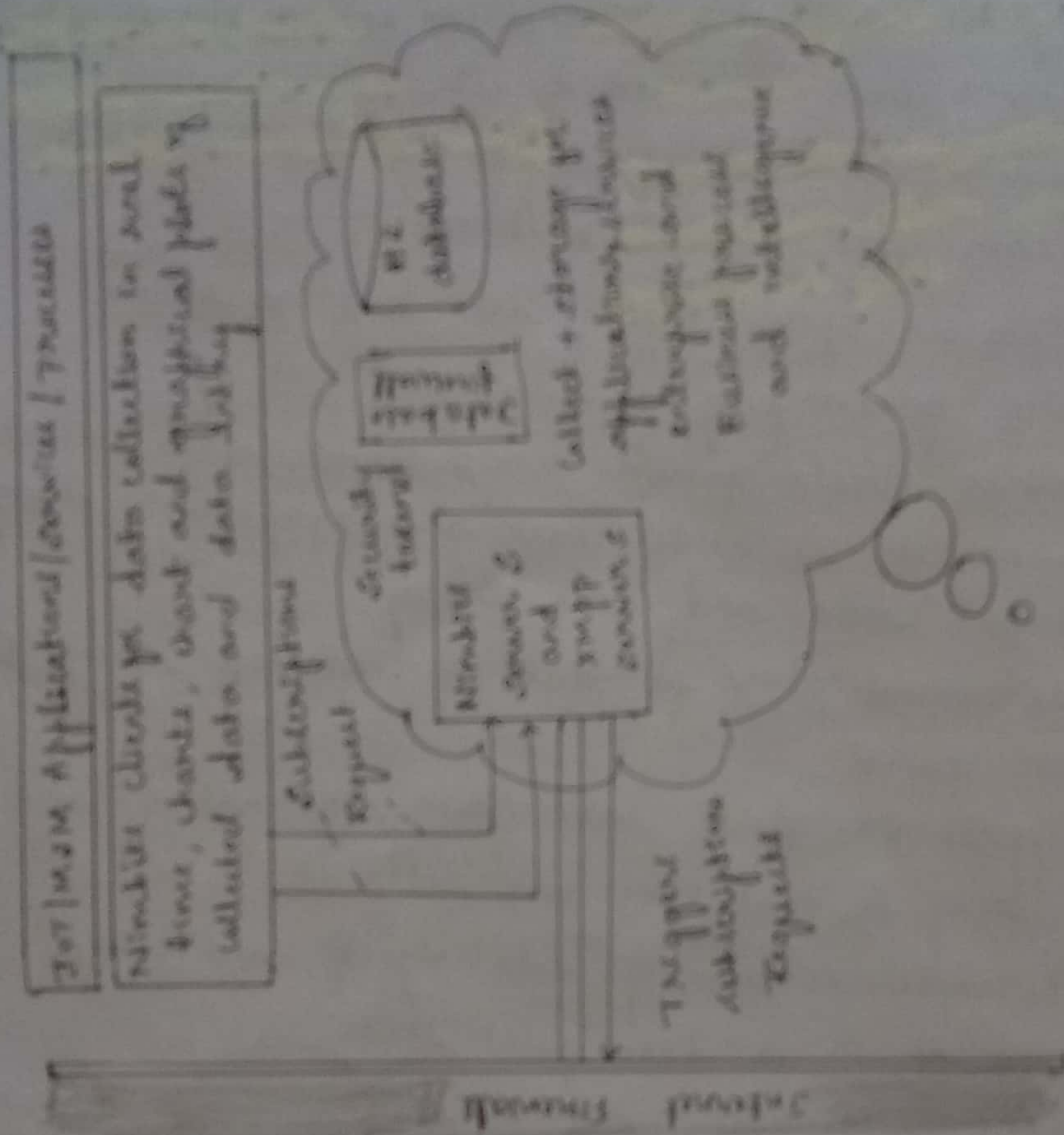 IOT/M2M Applications/Services/Processes
Nimbits clients for data collection in real
time, charts, chart and graphical plots of
collected data and data entry
Subscriptions
Request
Security
Nimbits
Server S
and
XMPP
Servers
database
Collect + storage for
applications/services
enterprise and
Business process
and intelligence
Trigger
subscriptions
Requests
Internet Firewall